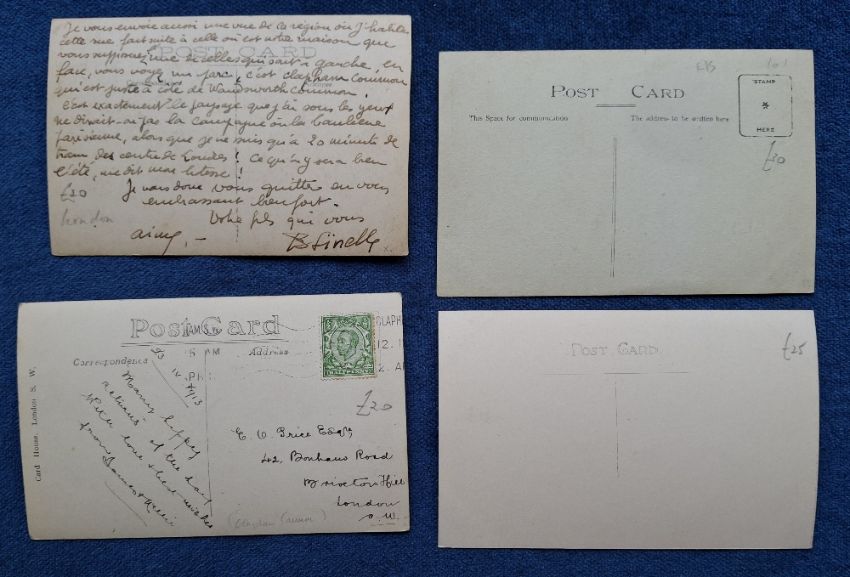 Je vous envoie aussi une vue de la région où j'habite
cette rue fait suite à celle où est notre maison que
vous supposez une de celles qui sont à gauche, en
POST CARD
face, vous voyez un parc, c'est clapham common
qui est juste à côté de Wandsworth common.
C'est exactement le paysage que j'ai sous les yeux
ne dirait-on pas la campagne ou la banlieue
parisienne, alors que je ne suis qu'à 20 minutes de
tram du centre de Londres! Ce qu'on y sera bien
l'été, me dit mon hôtesse!
Je vais donc vous quitter en vous
embrassant bien fort.
Votre fils qui vous
aime, -
£20
London
POST CARD
This Space for communication
The address to be written here
STAMP
HERE
£30
Post Card
Correspondence
Address
Card House, London S. W.
HALFPENNY
23
IV
1913
Many happy
returns of the day
With love & best wishes
from
£20
E. O. Price Esqre
42, Bonham Road
Brixton Hill
London
S.W.
(Clapham Common)
POST CARD
£25